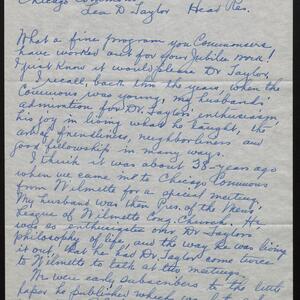 Chicago Commons
Lea D Taylor Head Res.
What a fine program you Commoners
have worked out for your Jubilee work!
I just know it would please Dr Taylor.
I recall, back thru the years, when the
Commons was young, my husband's
admiration for Dr. Taylor's enthusiasm,
his joy in living what he taught, the
art of friendliness, neighborliness and
good fellowship in many ways.
I think it was about 38 years ago
when we came in to Chicago Commons
from Wilmette for a special meeting.
My husband was then Pres. of the Men's
League of Wilmette Cong. Church. He
was so enthusiastic over Dr Taylor's
philosophy of life, and the way he was living
it out, that he had Dr Taylor come twice
to Wilmette to talk at the meetings.
We were early subscribers to the little
paper he published which